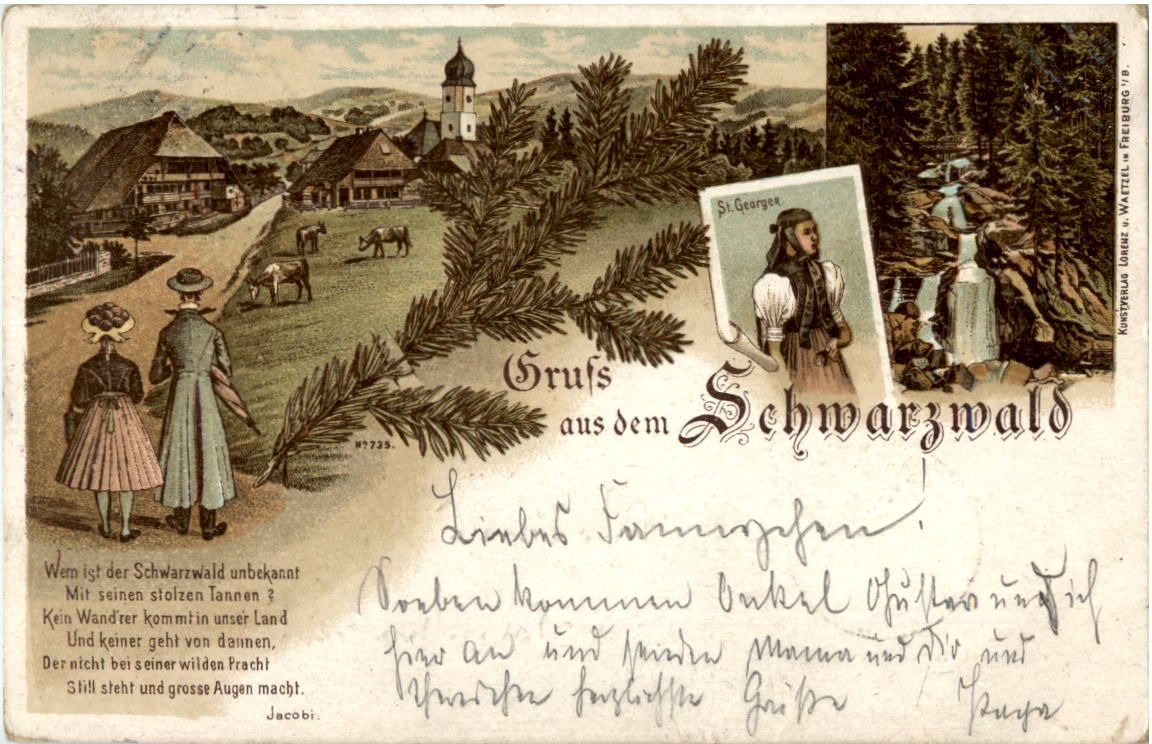 St. Georgen
KUNSTVERLAG LORENZ U. WAETZEL IN FREIBURG I/B.
Gruſs
aus dem Schwarzwald
No 735.
Liebes Fannychen!
Soeben kommen Onkel Gustav und ich
hier an und senden Mama und Dir und
herzlichste Grüße Papa
Wem ist der Schwarzwald unbekannt
Mit seinen stolzen Tannen?
Kein Wand'rer kommt in unser Land
Und keiner geht von dannen,
Der nicht bei seiner wilden Pracht
Still steht und grosse Augen macht.
Jacobi.